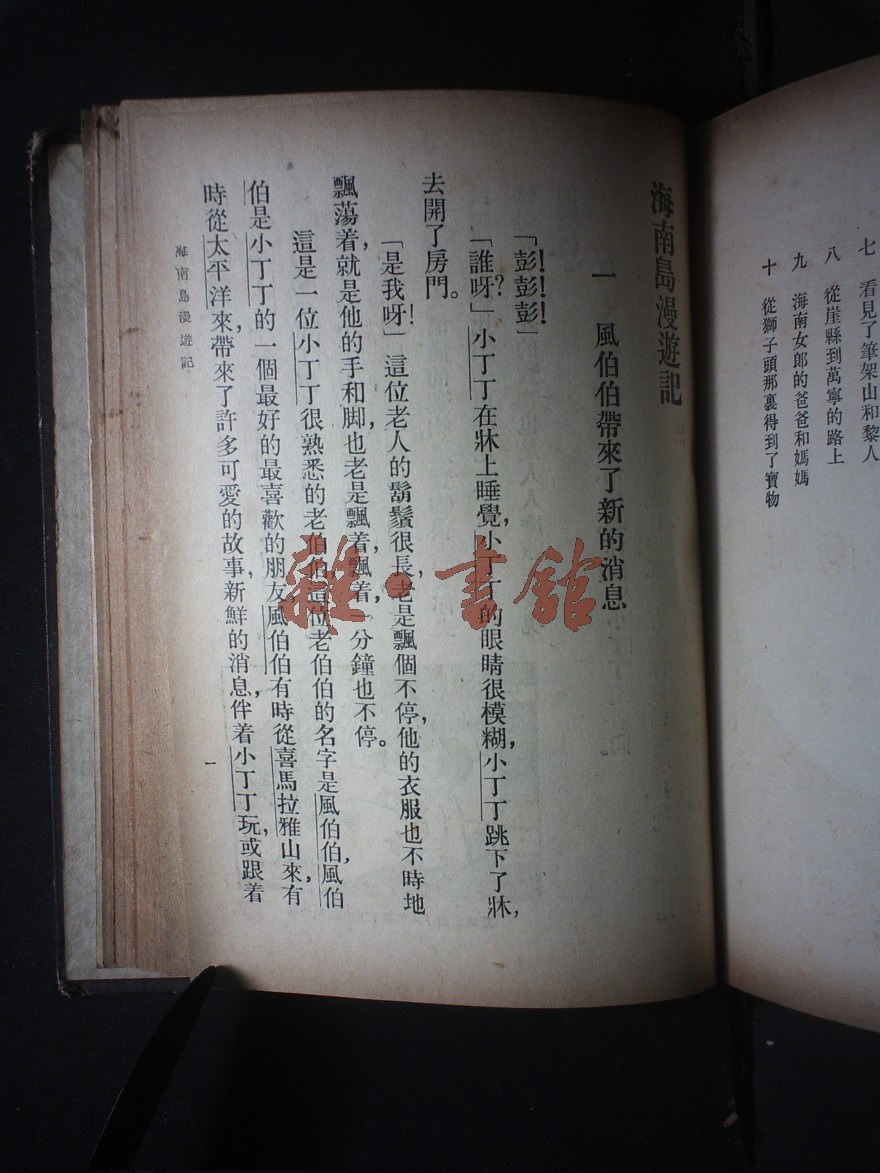 七　看見了筆架山和黎人
八　從崖縣到萬寧的路上
九　海南女郎的爸爸和媽媽
十　從獅子頭那裏得到了寶物
海南島漫遊記
一　風伯伯帶來了新的消息
「彭！彭！彭！」
「誰呀？」小丁丁在牀上睡覺，小丁丁的眼睛很模糊，小丁丁跳下了牀，
去開了房門。
「是我呀！」這位老人的鬍鬚很長，老是飄個不停，他的衣服也不時地
飄蕩着，就是他的手和脚，也老是飄着，飄着，一分鐘也不停。
這是一位小丁丁很熟悉的老伯伯，這位老伯伯的名字是風伯伯，風伯
伯是小丁丁的一個最好的最喜歡的朋友，風伯伯有時從喜馬拉雅山來，有
時從太平洋來，帶來了許多可愛的故事，新鮮的消息，伴着小丁丁玩，或跟着
海南島漫遊記
一
雜·書館